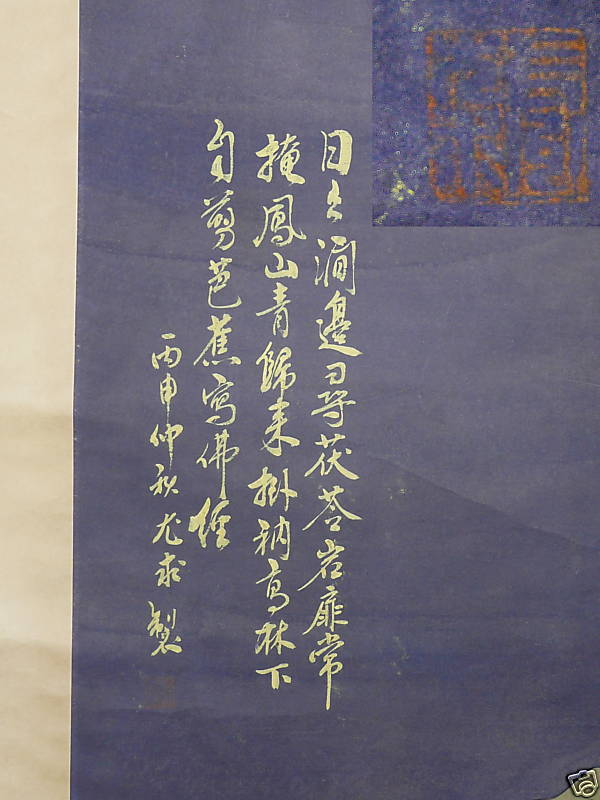 日々澗邊尋茯苓岩扉常
掩鳳山青歸来掛衲高林下
自翦芭蕉寫佛經
丙申仲秋尤求製